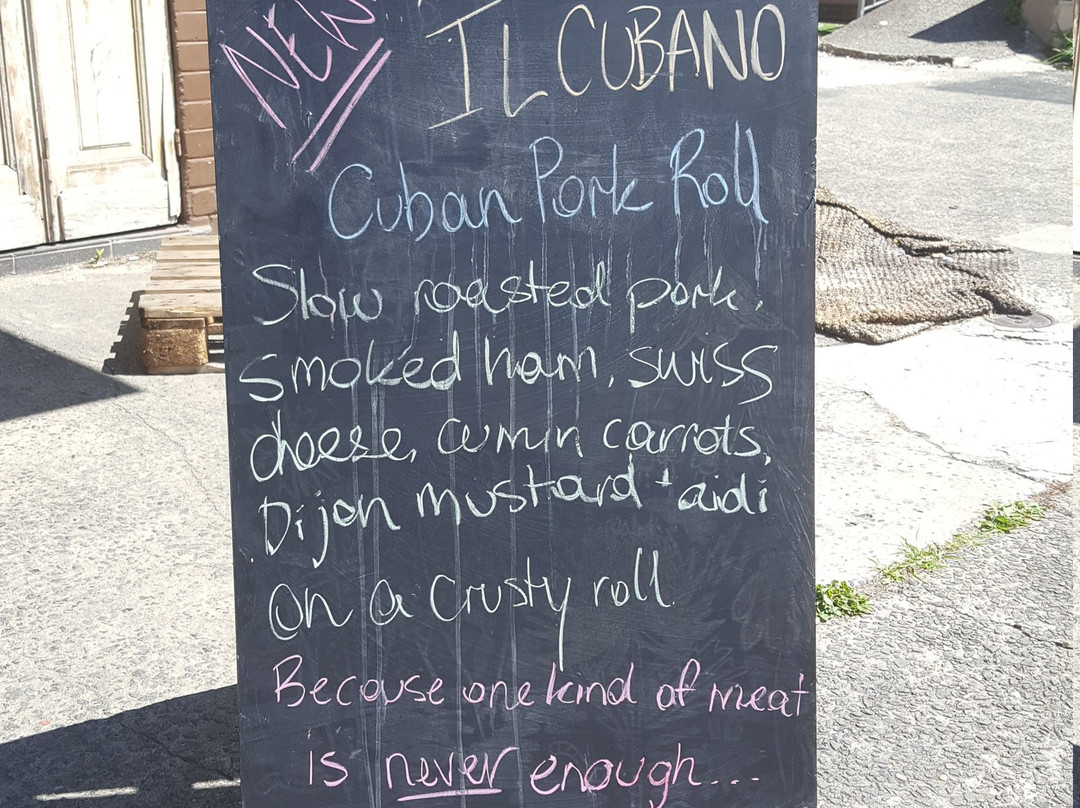 NEW
IL CUBANO
Cuban Pork Roll
Slow roasted pork,
smoked ham, swiss
cheese, cumin carrots,
Dijon mustard + aioli
On a crusty roll.
Because one kind of meat
is never enough...